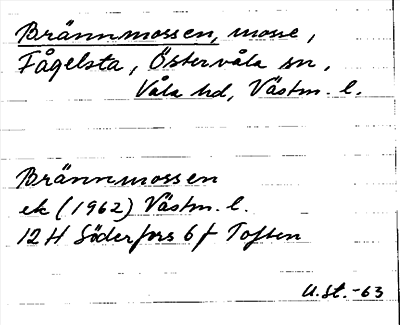 Brännmossen, mosse,
Fågelsta, Östervåla sn,
Våla hd, Västm. l.
Brännmossen
ek (1962) Västm. l.
12 H Söderfors 6 f Toften
U.St. -63